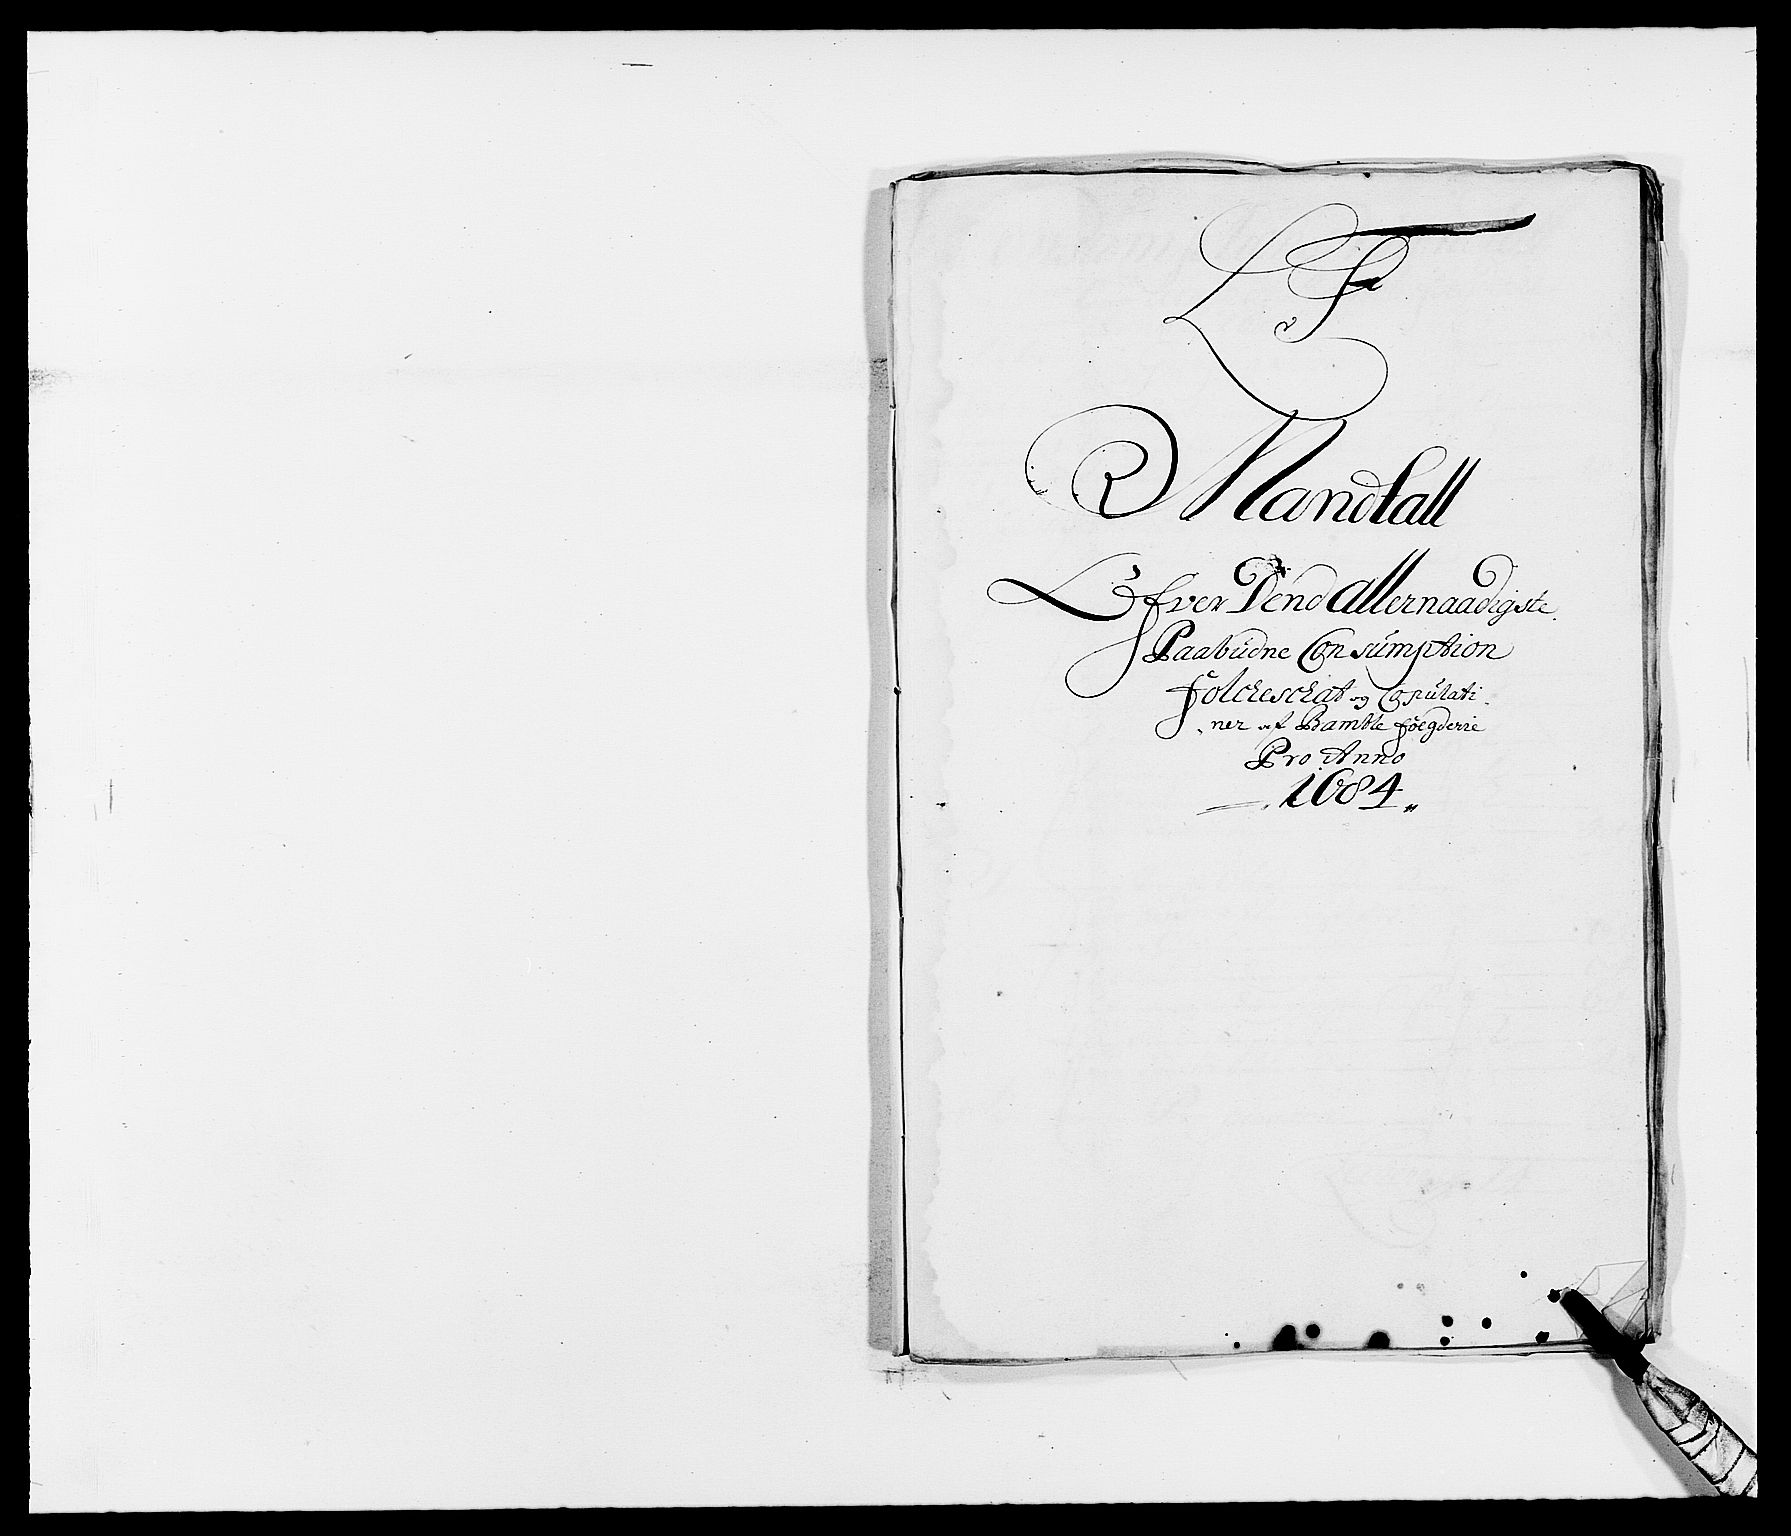 L F
Mandtall
Ofver Dend Allernaadigste
Paabudne Consumption
Folcheschat og Copulati
ner af Bamble foegderie
Pro Anno
1684